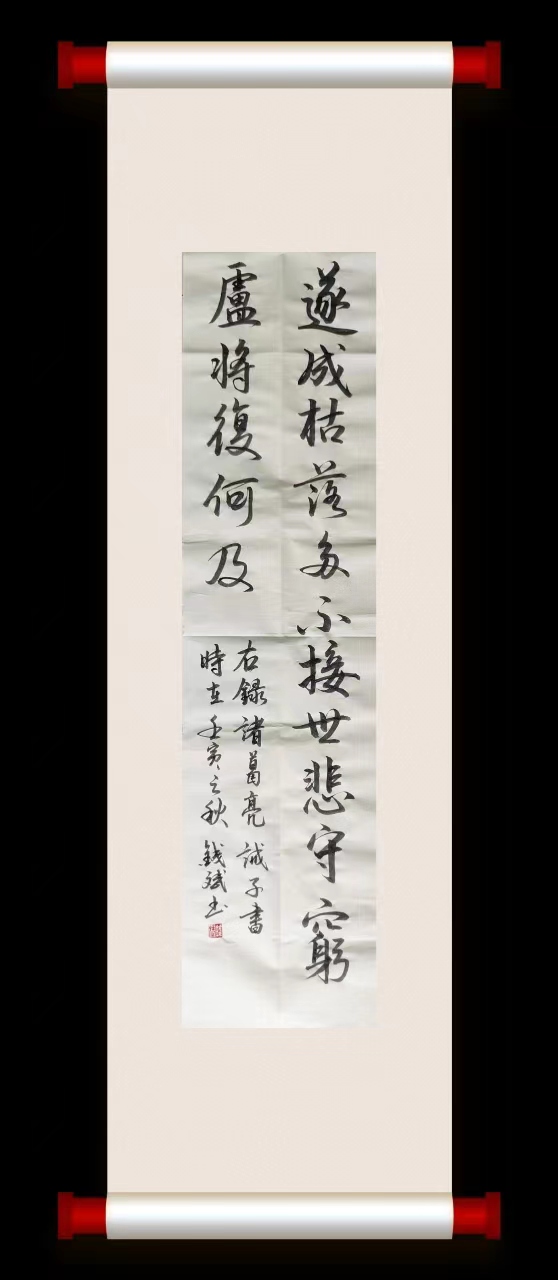 遂成枯落多不接世悲守窮
盧將復何及
右録諸葛亮誡子書
時在壬寅之秋 錢斌书